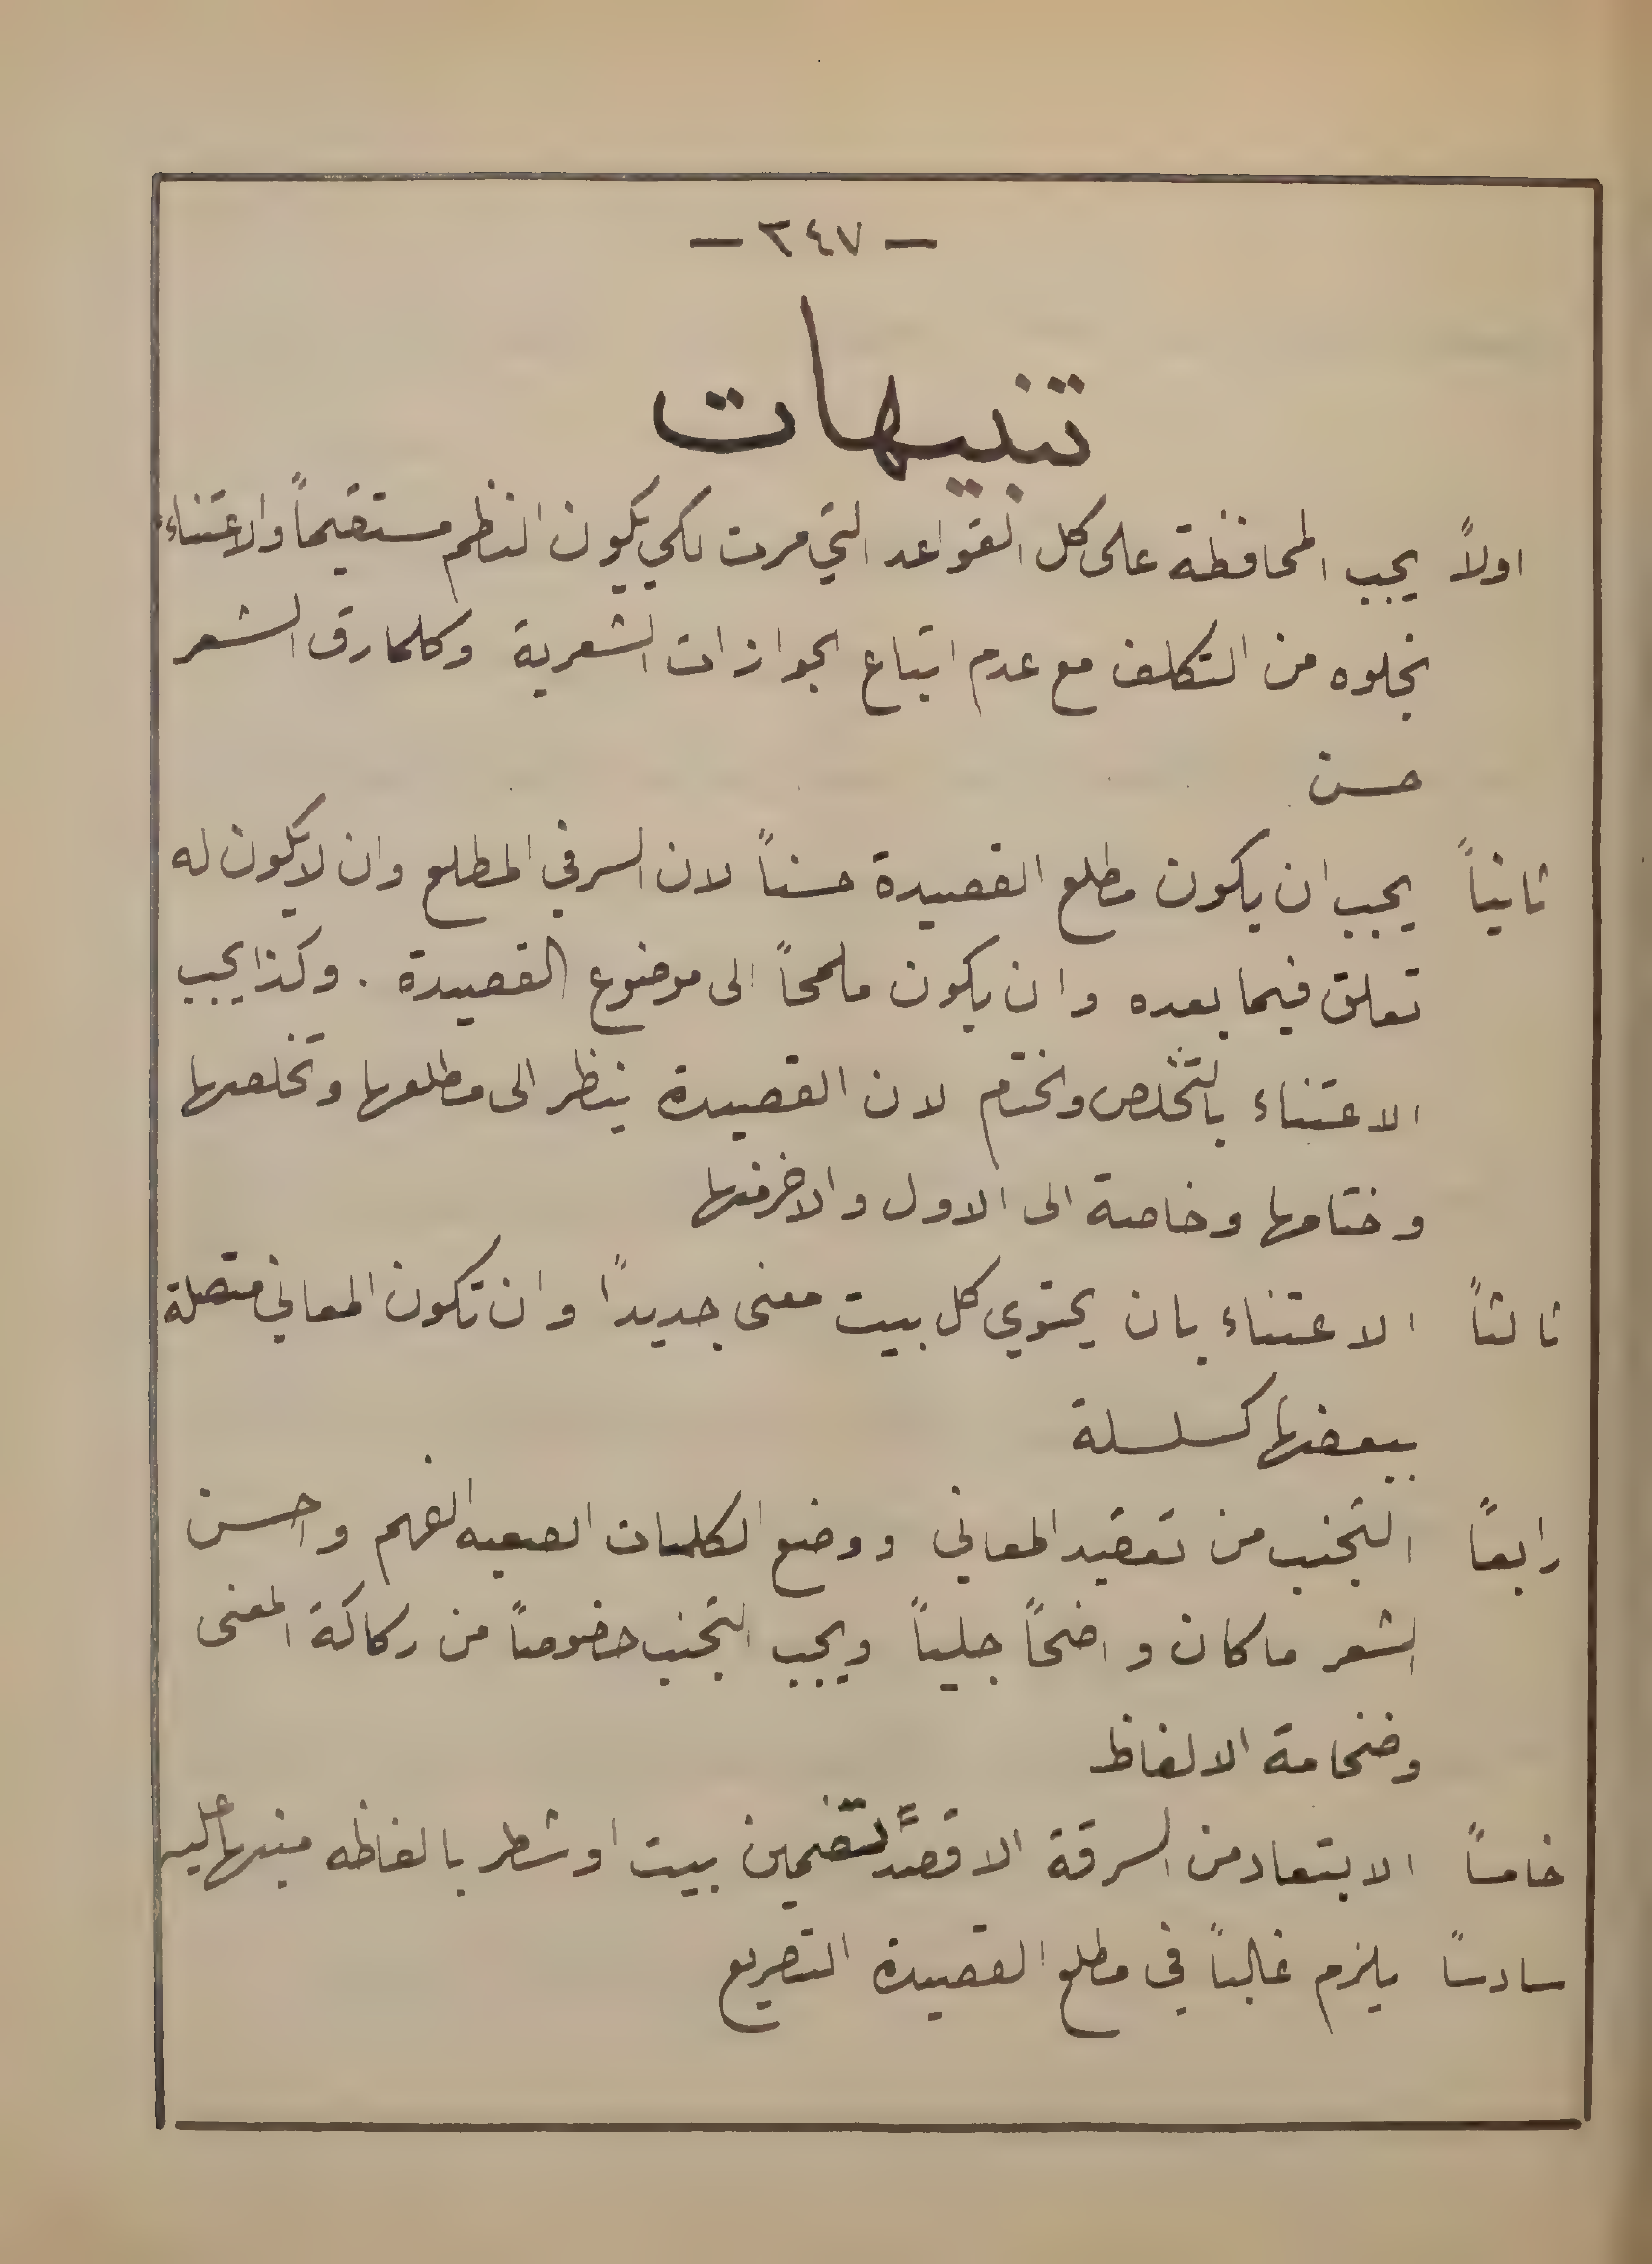 — ٣٤٧ —
تنبيهات
اولاً يجب المحافظة على كل القواعد التي مرت لكي يكون النظم مستقيماً والاعتناء
بخلوه من التكلف مع عدم اتباع الجوازات الشعرية وكلما رق الشعر
حسن
ثانياً يجب ان يكون مطلع القصيدة حسناً لان السر في المطلع وان لا يكون له
تعلق فيما بعده وان يكون ملمحاً الى موضوع القصيدة . وكذا يجب
الاعتناء بالتخلص والختم لان القصيدة ينظر الى مطلعها وتخلصها
وختامها وخاصة الى الاول والاخر منها
ثالثاً الاعتناء بان يحتوي كل بيت معنى جديداً وان تكون المعاني متصلة
ببعضها كسلسلة
رابعاً التجنب من تعقيد المعاني ووضع الكلمات الصعبه الفهم واحسن
الشعر ما كان واضحاً جلياً ويجب التجنب خصوصاً من ركاكة المعنى
وضخامة الالفاظ
خامساً الابتعاد من السرقة الا قصد لتضمين بيت او شطر بالفاظه منبهاً عليه
سادساً يلزم غالباً في مطلع القصيدة التصريع